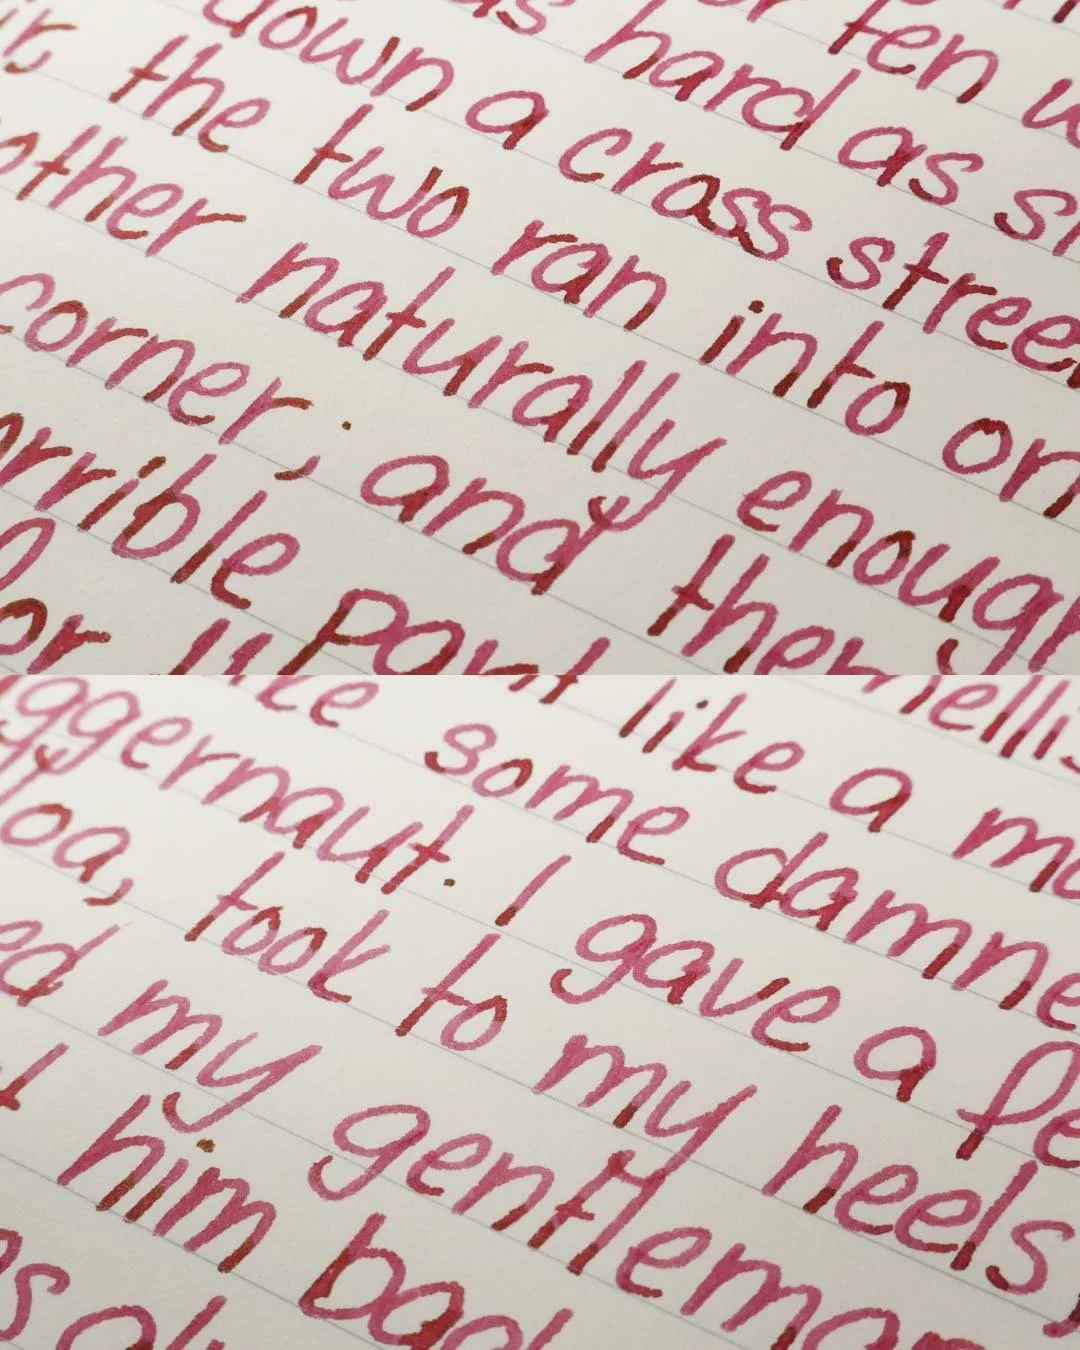 ten
as hard as
down a cross stree
the two ran into on
other naturally enough
corner; and then
rrible part
or
hellis
like a ma
some damne
ggernaut. I gave a fe
loa, took to my heels
ed my gentleman
him back